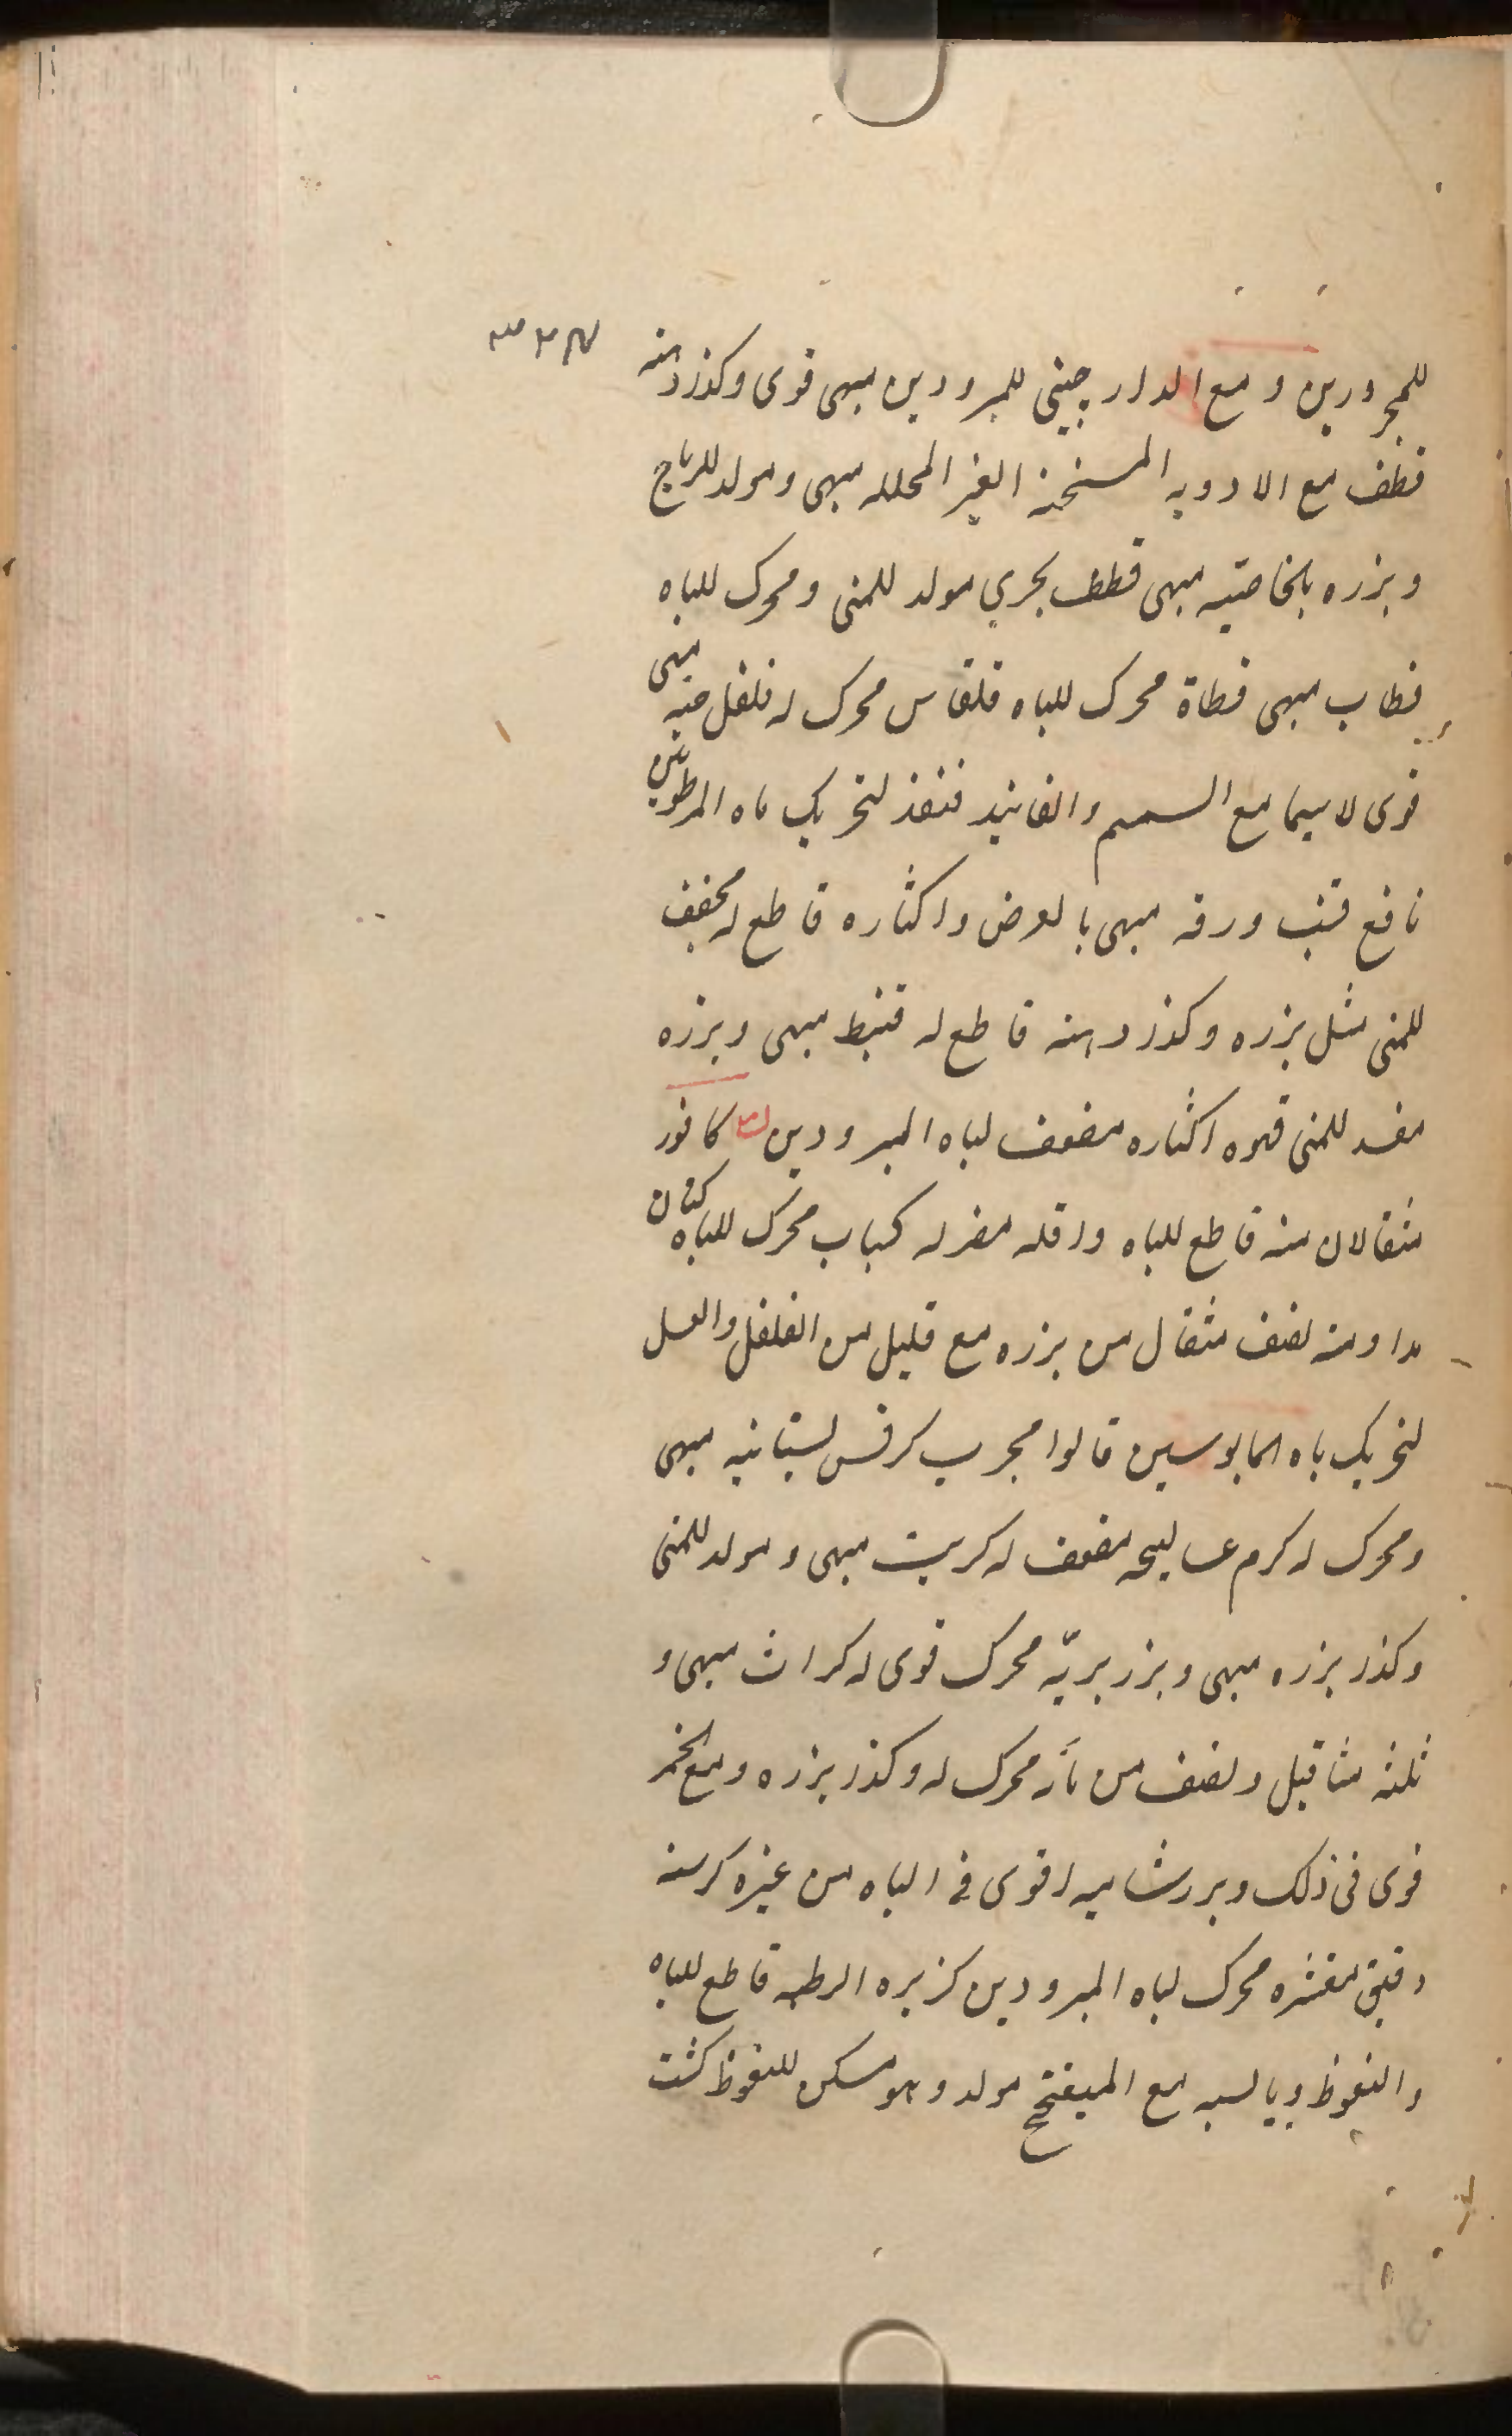 للمحرورين و مع الدارچيني للمبرودين مبهى قوى وكذا دهنه
قطف مع الادويه المسخنه الغير المحلله مبهى ومولد للرياح
وبزره بالخاصيه مبهى قطف بحري مولد للمنى ومحرك للباه
قطاب مبهى قطاة محرك للباه قلقاس محرك له قلقل حبه مبهى
قوى لاسيما مع السمسم والفانيد قنفذ لتحريك باه المرطوبين
نافع قنب ورقه مبهى بالعرض واكثاره قاطع له مجفف
للمنى مثل بزره وكذا دهنه قاطع له قنبيط مبهى وبزره
مفسد للمنى قهوه اكثاره مضعف لباه المبرودين كافور
مثقالان منه قاطع للباه واقله مضر له كباب محرك للباه كتان
مداومة نصف مثقال من بزره مع قليل من الفلفل والعسل
لتحريك باه المايوسين قالوا مجرب كرفس بستانيه مبهى
ومحرك له كرم عساليجه مضعف له كرنب مبهى ومولد للمنى
وكذا بزره مبهى وبزر بريه محرك قوى له كراث مبهى و
ثلثه مثاقيل ونصف من مائه محرك له وكذا بزره ومع الخمر
قوى فى ذلك وبزر شاميه اقوى فى الباه من غيره كرسنه
دقيق مقشره محرك لباه المبرودين كزبره الرطبه قاطع للباه
والنعوظ ويابسه مع الميفختج مولد وهو مسكن للنعوظ كشت